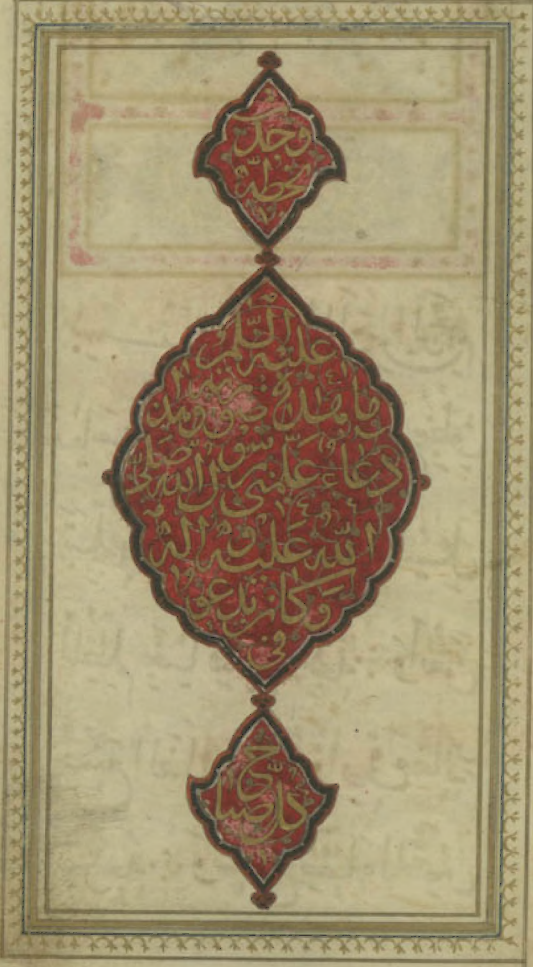 وجد
بخطه
عليه السلم
وما هذه صورته
دعاء علمني رسول الله صلى
الله عليه وآله
وكان يدعو
في
كل صباح